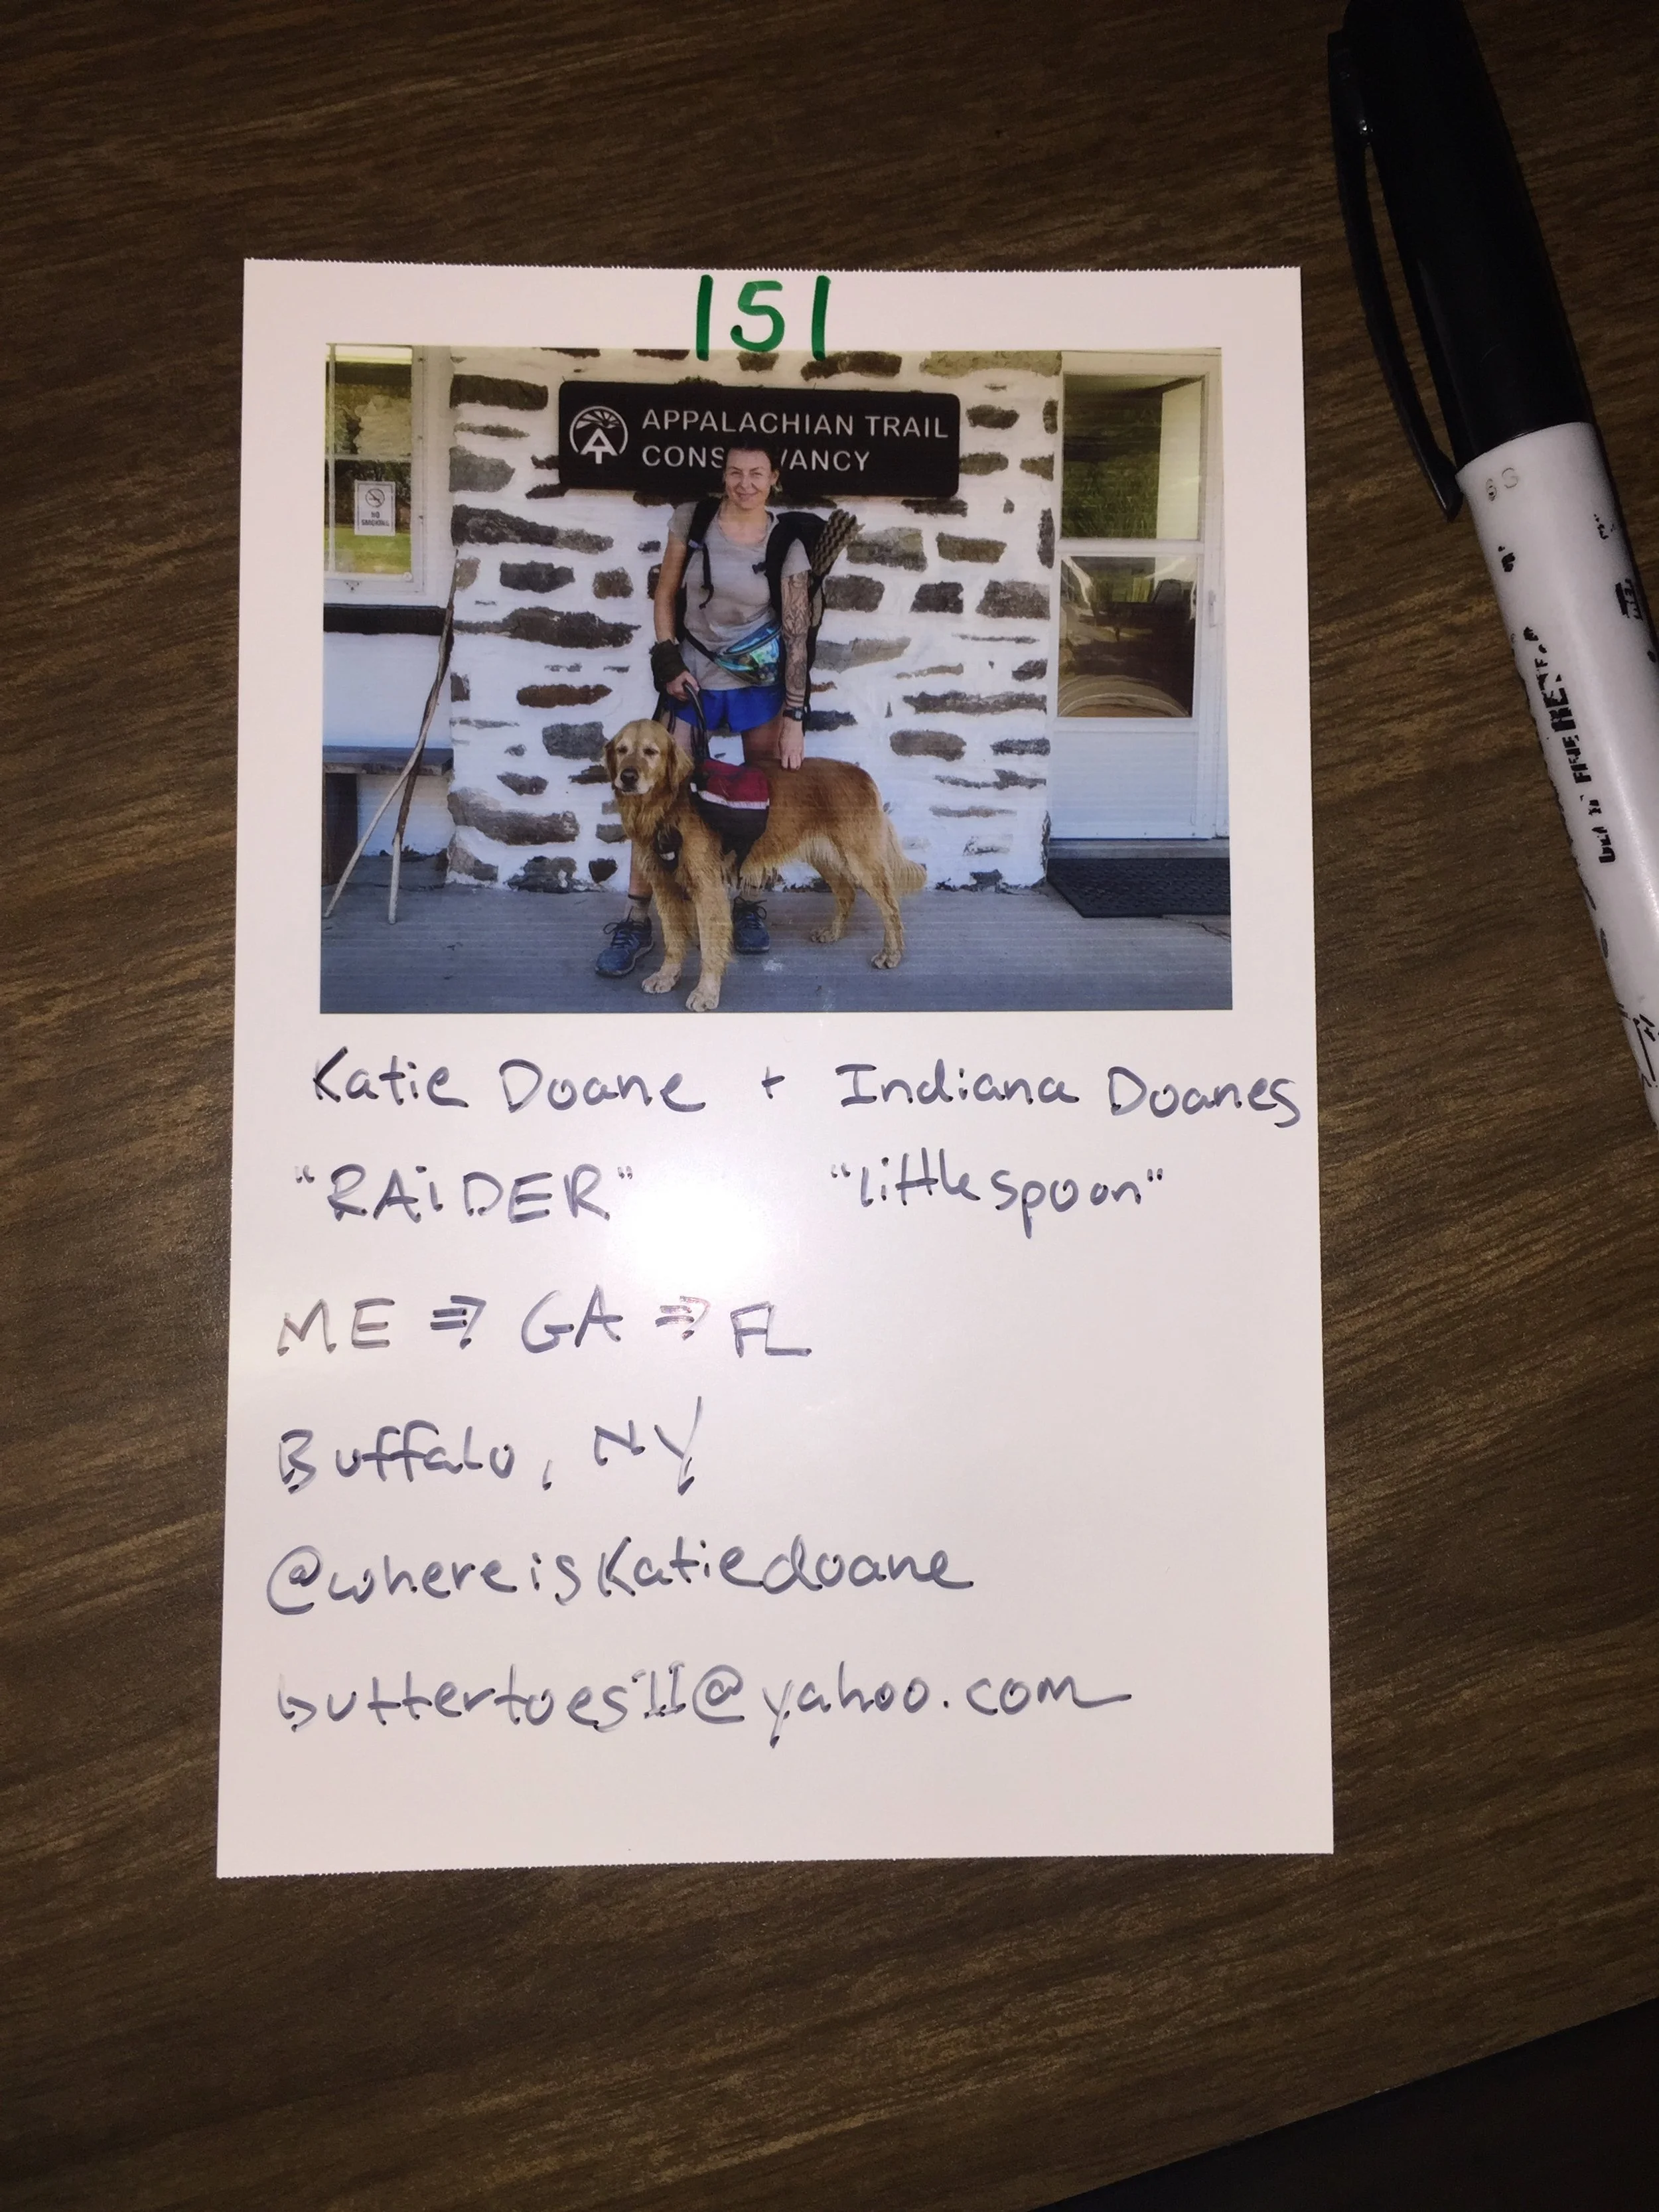 151
APPALACHIAN TRAIL
CONS VANCY
NO
SMOKING
Katie Doane + Indiana Doanes
"RAiDER" "littlespoon"
ME ⇒ GA ⇒ FL
Buffalo, NY
@whereisKatiedoane
buttertoes11@yahoo.com